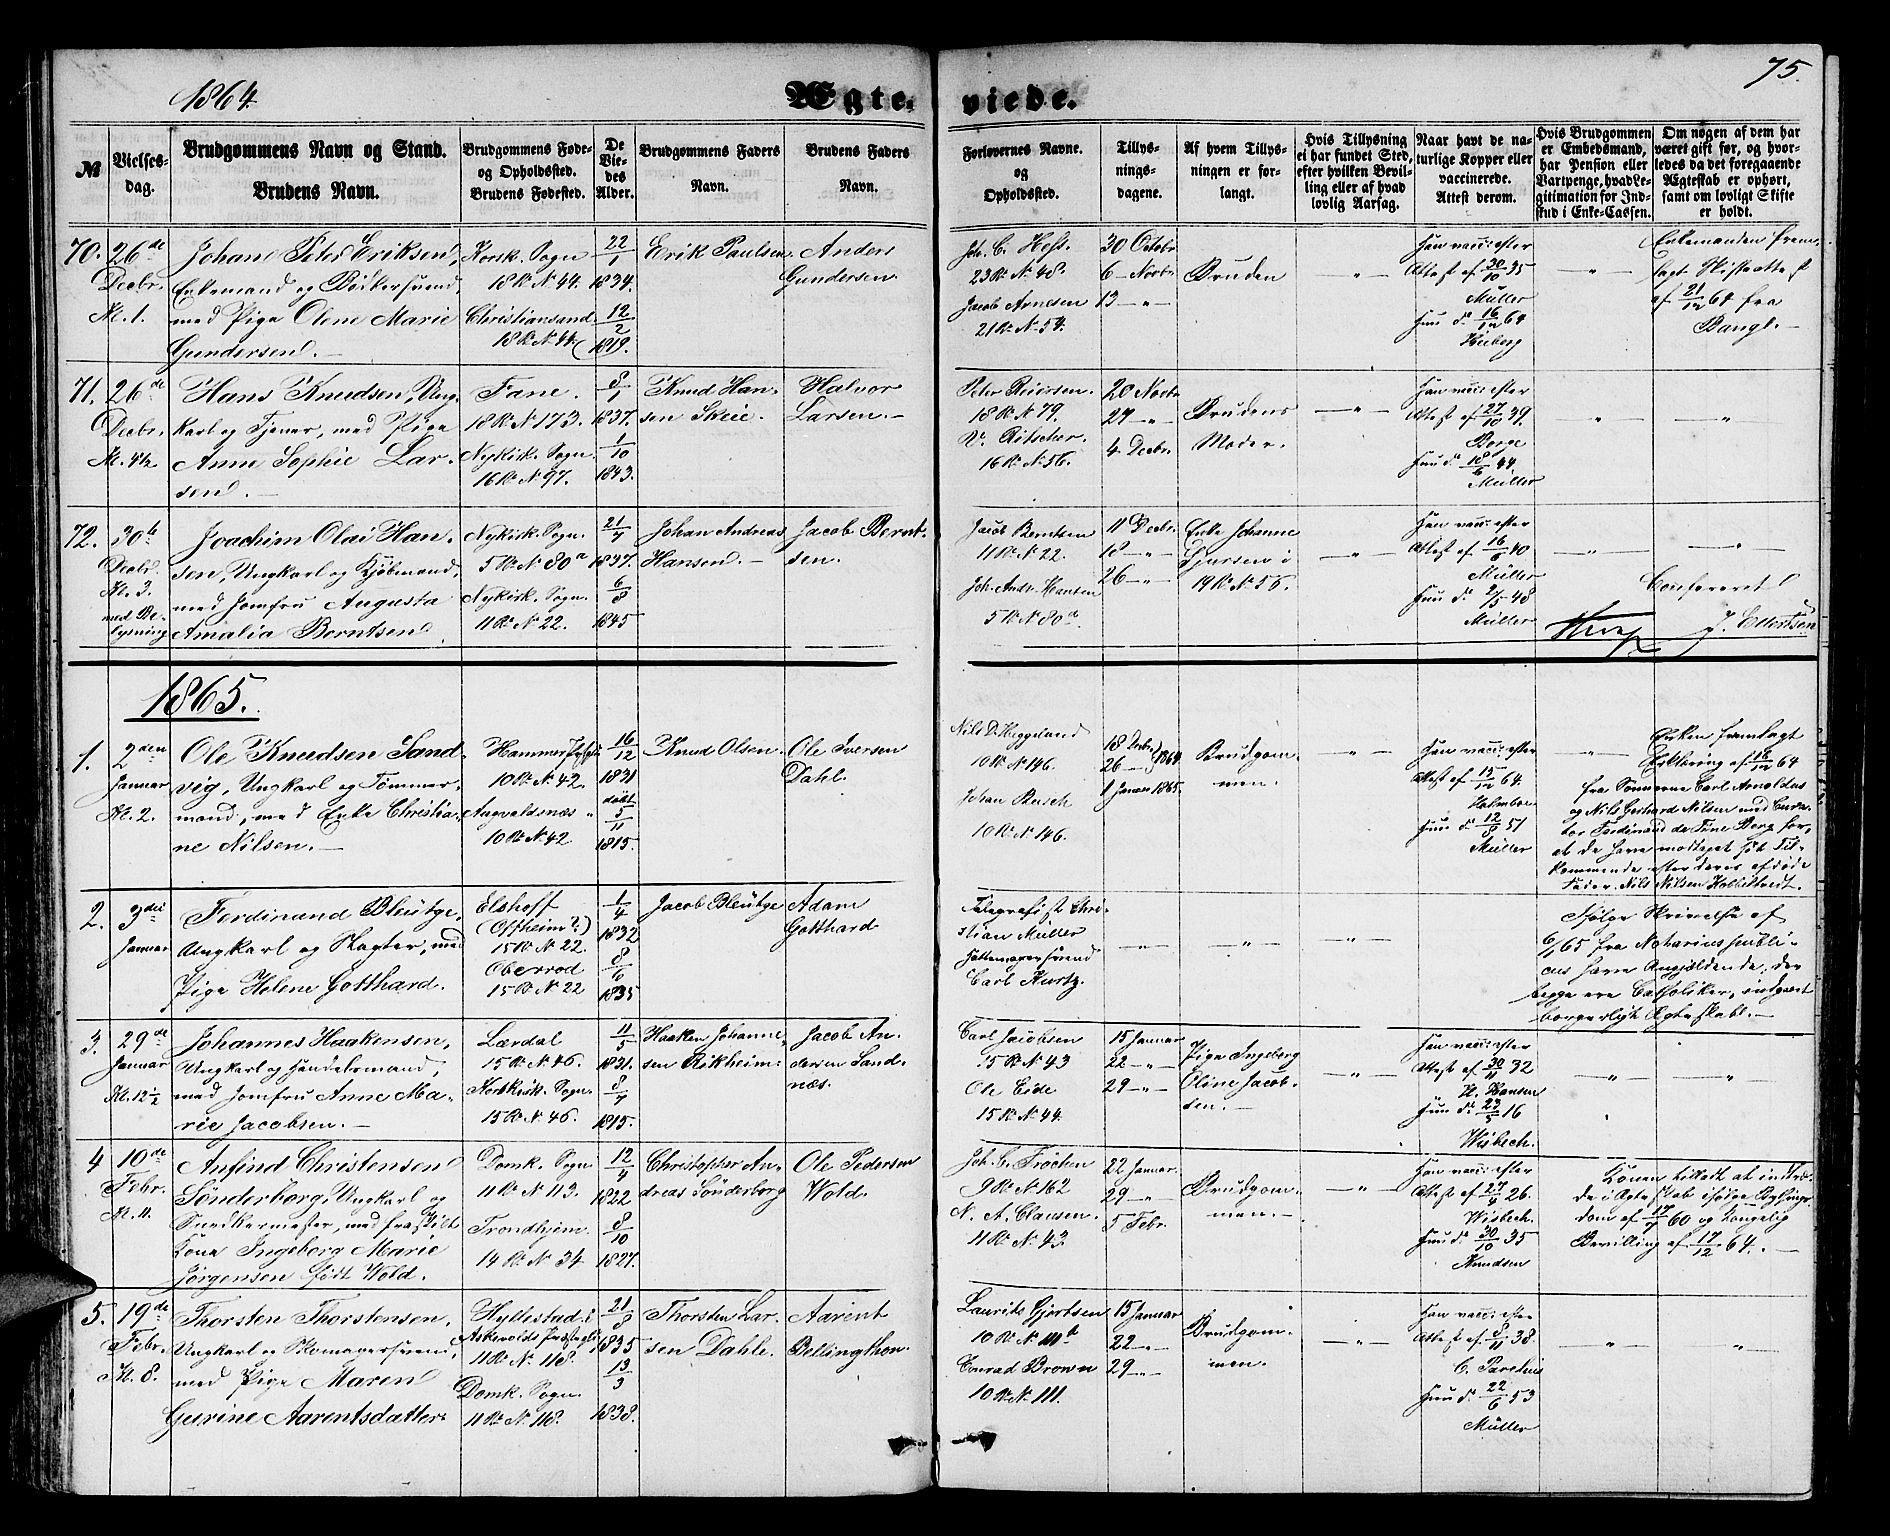 1864.
Ægte-
viede.
75.
№
Vielses-
dag.
Brudgommens Navn og Stand.
Brudens Navn.
Brudgommens Føde-
og Opholdssted.
Brudens Fødested.
De
Vie-
des
Alder.
Brudgommens Faders
Navn.
Brudens Faders
Navn.
Forlovernes Navne.
og
Opholdssted.
Tillys-
nings-
dagene.
Af hvem Tillys-
ningen er for-
langt.
Hvis Tillysning
ei har fundet Sted,
efter hvilken Bevil-
ling eller af hvad
lovlig Aarsag.
Naar havt de na-
turlige Kopper eller
vaccinerede.
Attest derom.
Hvis Brudgommen
er Embedsmand,
har Pension eller
Vartpenge, hvad Le-
gitimation for Ind-
skud i Enke-Cassen.
Om nogen af dem har
været gift før, og hvor-
ledes da det foregaaende
Ægteskab er ophørt,
samt om lovligt Skifte
er holdt.
70.
26de
Decbr.
Kl. 1.
Johan Peter Eriksen,
Enkemand og Bødkersvend,
med Pige Olene Marie
Gundersen. —
Korsk. Sogn
18 R. N. 44.
Christiansand
18 R. N. 44
22/1
1834.
12/2
1819.
Erik Paulsen
Anders
Gundersen.
Joh. C. Hess.
23 R. N. 48.
Jacob Arnesen
21 R. N. 54.
30 Octobr
6 — Novbr
13 — "
Bruden
— " —
Han vacc: efter
Attest af 30/10 35
Müller
Hun do 16/12 64
Heiberg
— " —
Enkemanden frem-
lagt Skifteattest
af 21/12 64 fra
Bangl. —
71.
26de
Decbr.
Kl. 4½
Hans Knudsen, Ung-
karl og Tjener, med Pige
Anne Sophie Lar-
sen. —
Fane.
18 R. N. 173.
Nykirk. Sogn.
16 R. N. 97.
8/1
1837.
1/10
1843.
Knud Han-
sen Skeie.
Halvor
Larsen. —
Peter Reiersen.
18 R. N. 79.
V. Ritscher.
16 R. N. 56.
20 Novbr
27 — "
4 Decbr.
Brudens
Moder.
— " —
Han vacc: efter
Attest af 27/10 39.
Borge
Hun do 18/6 44
Müller
"
"
72.
30te
Decbr.
Kl. 3
med Be-
lysning
Joachim Olai Han-
sen, Ungkarl og Kjøbmand,
med Jomfru Augusta
Amalia Berntsen.
Nykirk. Sogn.
5 R. N. 80a
Nykirk. Sogn.
11 R. N. 22.
21/7
1837.
6/8
1845
Johan Andreas
Hansen. —
Jacob Bernt-
sen.
Jacob Berntsen
11 R. N. 22.
Joh. Andr. Hansen
5 R. N. 80d
11 Decbr.
18 — "
26 — "
Enke Johanne
i
19 R. N. 56.
— " —
Han vacc: efter
Attest af 16/6 40
Müller
Hun do 2/5 48
Müller
— " —
— " —
Confereret
J. Ellertsen
1865.
1.
2den
Januar
Kl. 2.
Ole Knudsen Sand-
vig, Ungkarl og Tømmer-
mand, med Enke Christia-
ne Nilsen. —
Hammer
10 R. N. 42.
Augvaldsnæs "
10 R. N. 42
16/12
1831
døbt
5/11
1815.
Knud Olsen.
Ole Iversen
Dahl.
Nils D. Huggeland
10 R. N. 146.
Johan Rusch
10 R. N. 146.
18 Decbr
26 — " 1864
1 Januar 1865.
Brudgom-
men.
— " —
Han vacc: efter
Attest af 15/12 64.
Holmboe
Hun do 12/8 51
Müller
"
Enken fremlagt
Erklæring af 16/12 64
fra Sønnerne Carl Arnoldus
og Nils Gerhard Nilsen med Cura-
tor Ferdinand de Fine Berg for,
at de have modtaget sit Til-
kommende efter deres afdøde
Fader Nils Nilsen
2.
3die
Januar
Ferdinand Bleütge,
Ungkarl og Slagter, med
Pige Helene Gotthard.
Elshoff
(Offheim?)
15 R. N. 22.
Oberrod
15 R. N. 22
1/4
1832
8/6
1835
Jacob Bleütge
Adam
Gotthard
Telegrafist Chri-
stian Müller
Hattemagersvend
Carl Kurtz.
— " —
"
— " —
Ifølge Skrivelse af
6/1 65 fra Notarius publi-
cus have Angjældende, der
begge ere Catholiker, indgaaet
borgerligt Ægteskab. —
3.
29de
Januar
Kl. 12½
Johannes Haakensen,
Ungkarl og Handelsmand,
med Jomfru Anne Ma-
rie Jacobsen. —
Lærdal
15 R. N. 46.
Korskirk. Sogn.
15 R. N. 46.
11/5
1831.
8/7
1815.
Haaken Johanne-
sen Rikheim.
Jacob An-
dersen Sand-
næs.
Carl Jacobsen
15 R. N. 43
Ole Eide
15 R. N. 44.
15 Januar
22 — "
29 — "
Pige Ingeborg
Oline Jacob-
sen. —
— " —
Han vacc: efter
Attest af 30/11 32
H. Hansen
Hun do 23/5 16
Wisbech.
"
"
4
10de
Febr.
Kl. 11.
Anfind Christensen
Sønderborg, Ungkarl og
Snedkermester, med fraskilt
Kone Ingeborg Marie
Jørgensen født Wold.
Domk. Sogn
11 R. N. 113.
Trondhjem.
14 R. N. 34
12/4
1822
8/10
1827.
Christopher An-
dreas Sønderborg
Ole Pedersen
Wold.
Joh. C. Frøchen
9 R. N. 162
N. A. Clausen.
11 R. N. 43.
22 Januar.
29 — "
5 Febr.
Brudgom-
men. —
— " —
Han vacc: efter
Attest af 27/4 26.
Wisbech.
Hun do 30/10 35
Knudsen
Konen tilladt at indtræ-
de i Ægteskab ifølge
dom af 17/7 60 og Kongelig
Bevilling af 17/12 64. —
5.
19de
Febr.
Kl. 8.
Thorsten Thorstensen,
Ungkarl og Skomagersvend,
med Pige Maren
Gurine Aarentsdatter
Hyllestad i
Askevolds Præstegj.
11 R. N. 118.
Domk. Sogn.
11 R. N. 118.
21/8
1835
13/3
1838.
Thorsten Lar-
sen Dahle.
Aarent
Bellingthon.
Laurits Gjertsen
10 R. N. 111d
Conrad Brown
10 R. N. 111.
15 Januar
22 — "
29 — "
Brudgom-
men.
— " —
Han vacc: efter
Attest af 8/11 38.
C. Parelius
Hun do 22/6 53
Müller
"
"